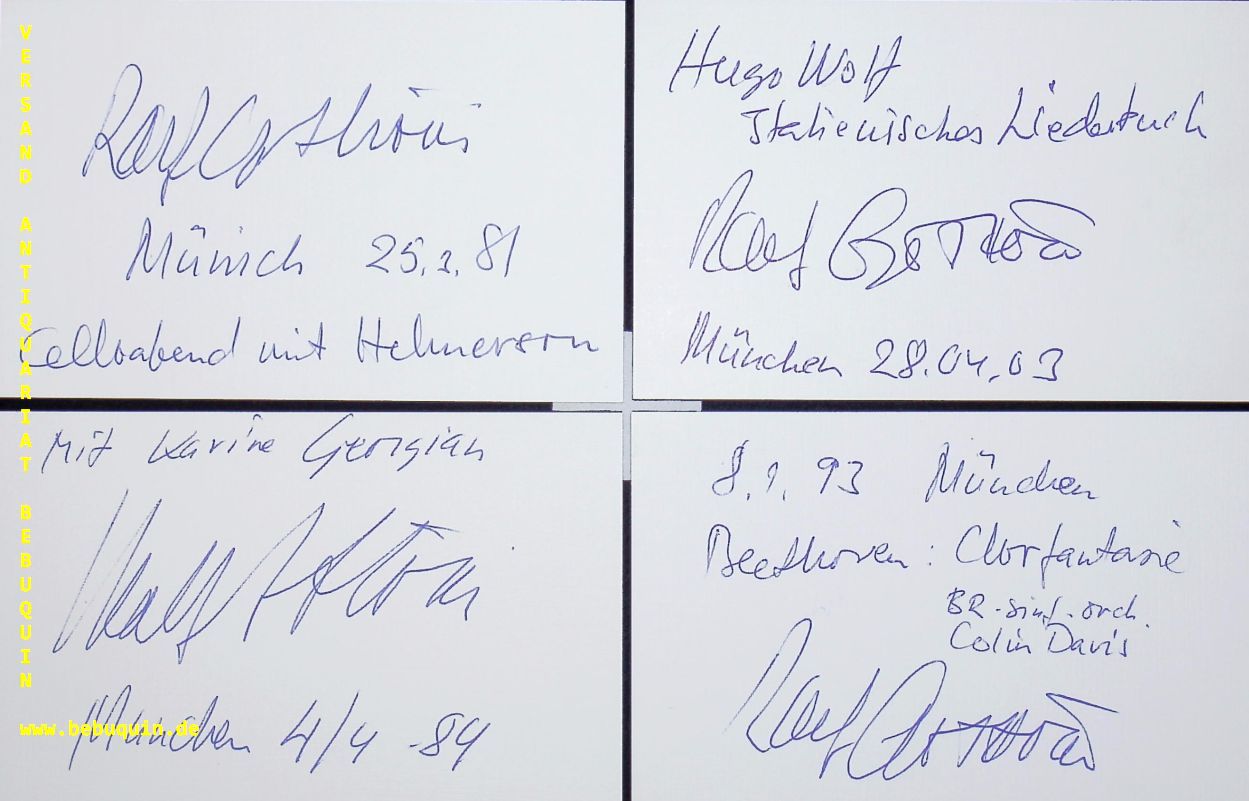 Ralf Gothóni
Münich 25.2.81
Celloabend mit Helmerson
Hugo Wolf
Italienisches Liederbuch
Ralf Gothóni
München 28.04.03
Mit Karine Georgian
Ralf Gothóni
München 4/4 -84
8.1.93 München
Beethoven: Chorfantasie
BR-sinf.orch.
Colin Davis
Ralf Gothóni
VERSAND ANTIQUARIAT BEBUQUIN
www.bebuquin.de